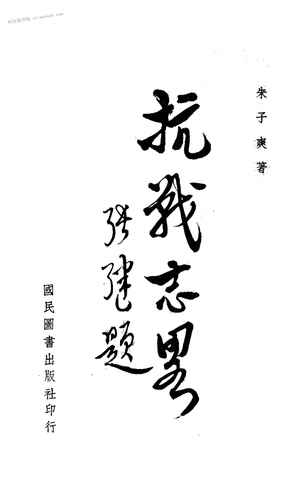 朱子爽著
抗戰志畧
張繼題
國民圖書出版社印行